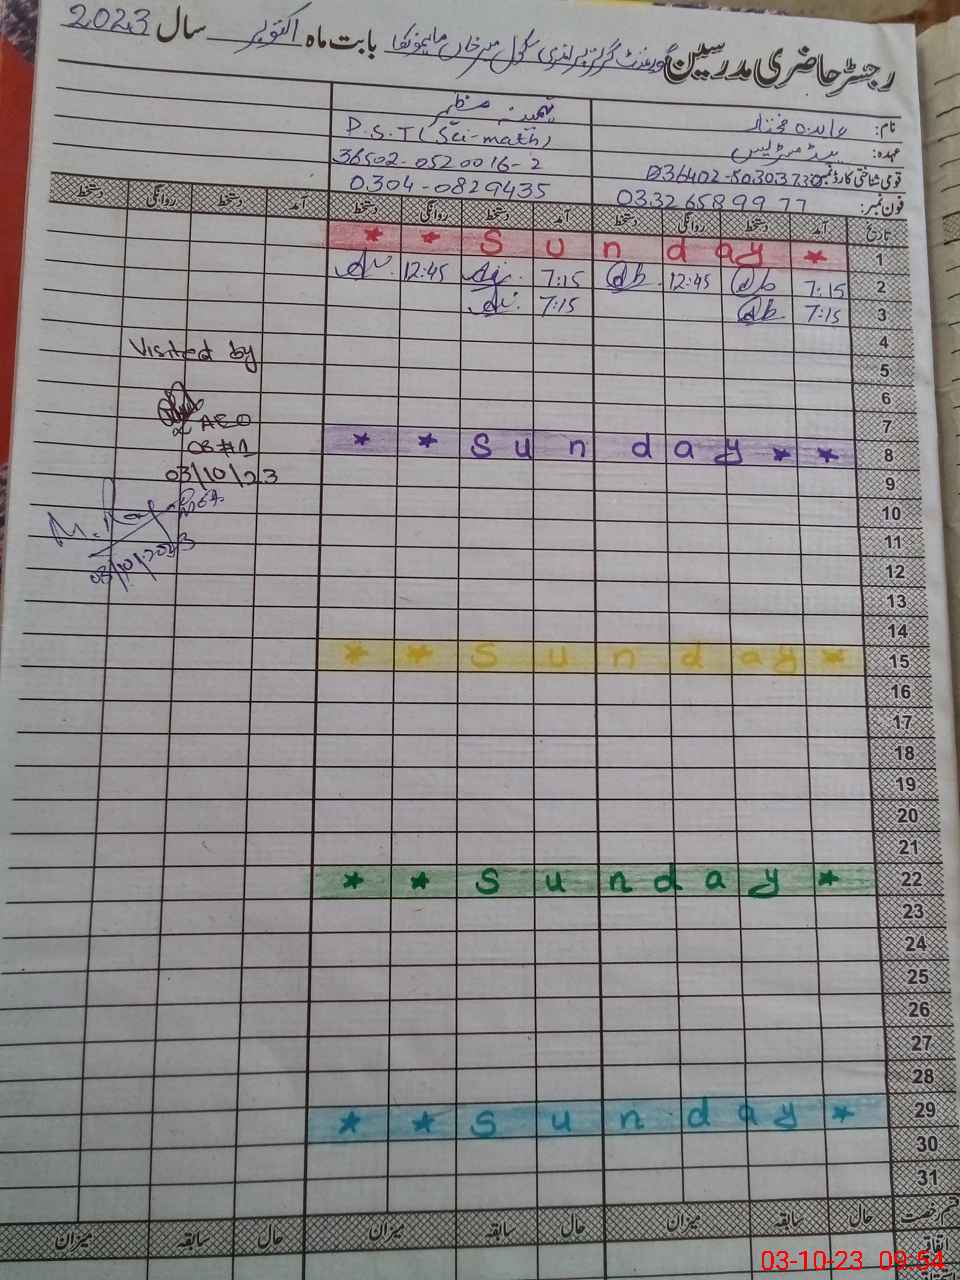 رجسٹر حاضری مدرسین گورنمنٹ گرلز پرائمری سکول میر خاں بابت ماہ اکتوبر سال 2023
نام: عابدہ مختار
عہدہ: ہیڈ مسٹریس
P.S.T (Sci-math)
قومی شناختی کارڈ نمبر
36502-0520016-2
فون نمبر: 0332 658 99 77
0304-0829435
تاریخ آمد دستخط روانگی دستخط آمد دستخط روانگی دستخط آمد دستخط روانگی دستخط
1 * * Sunday *
2 7:15 12:45 7:15 12:45
3 7:15 7:15
4
Visited by
5
6
7
AEO
8 * * Sunday * *
03/10/23
9
10
11
03/10/2023
12
13
14
15 * * Sunday *
16
17
18
19
20
21
22 * * Sunday *
23
24
25
26
27
28
29 * * Sunday *
30
31
قسم رخصت حال سابقہ میزان حال سابقہ میزان حال سابقہ میزان
اتفاقیہ
03-10-23 09:54